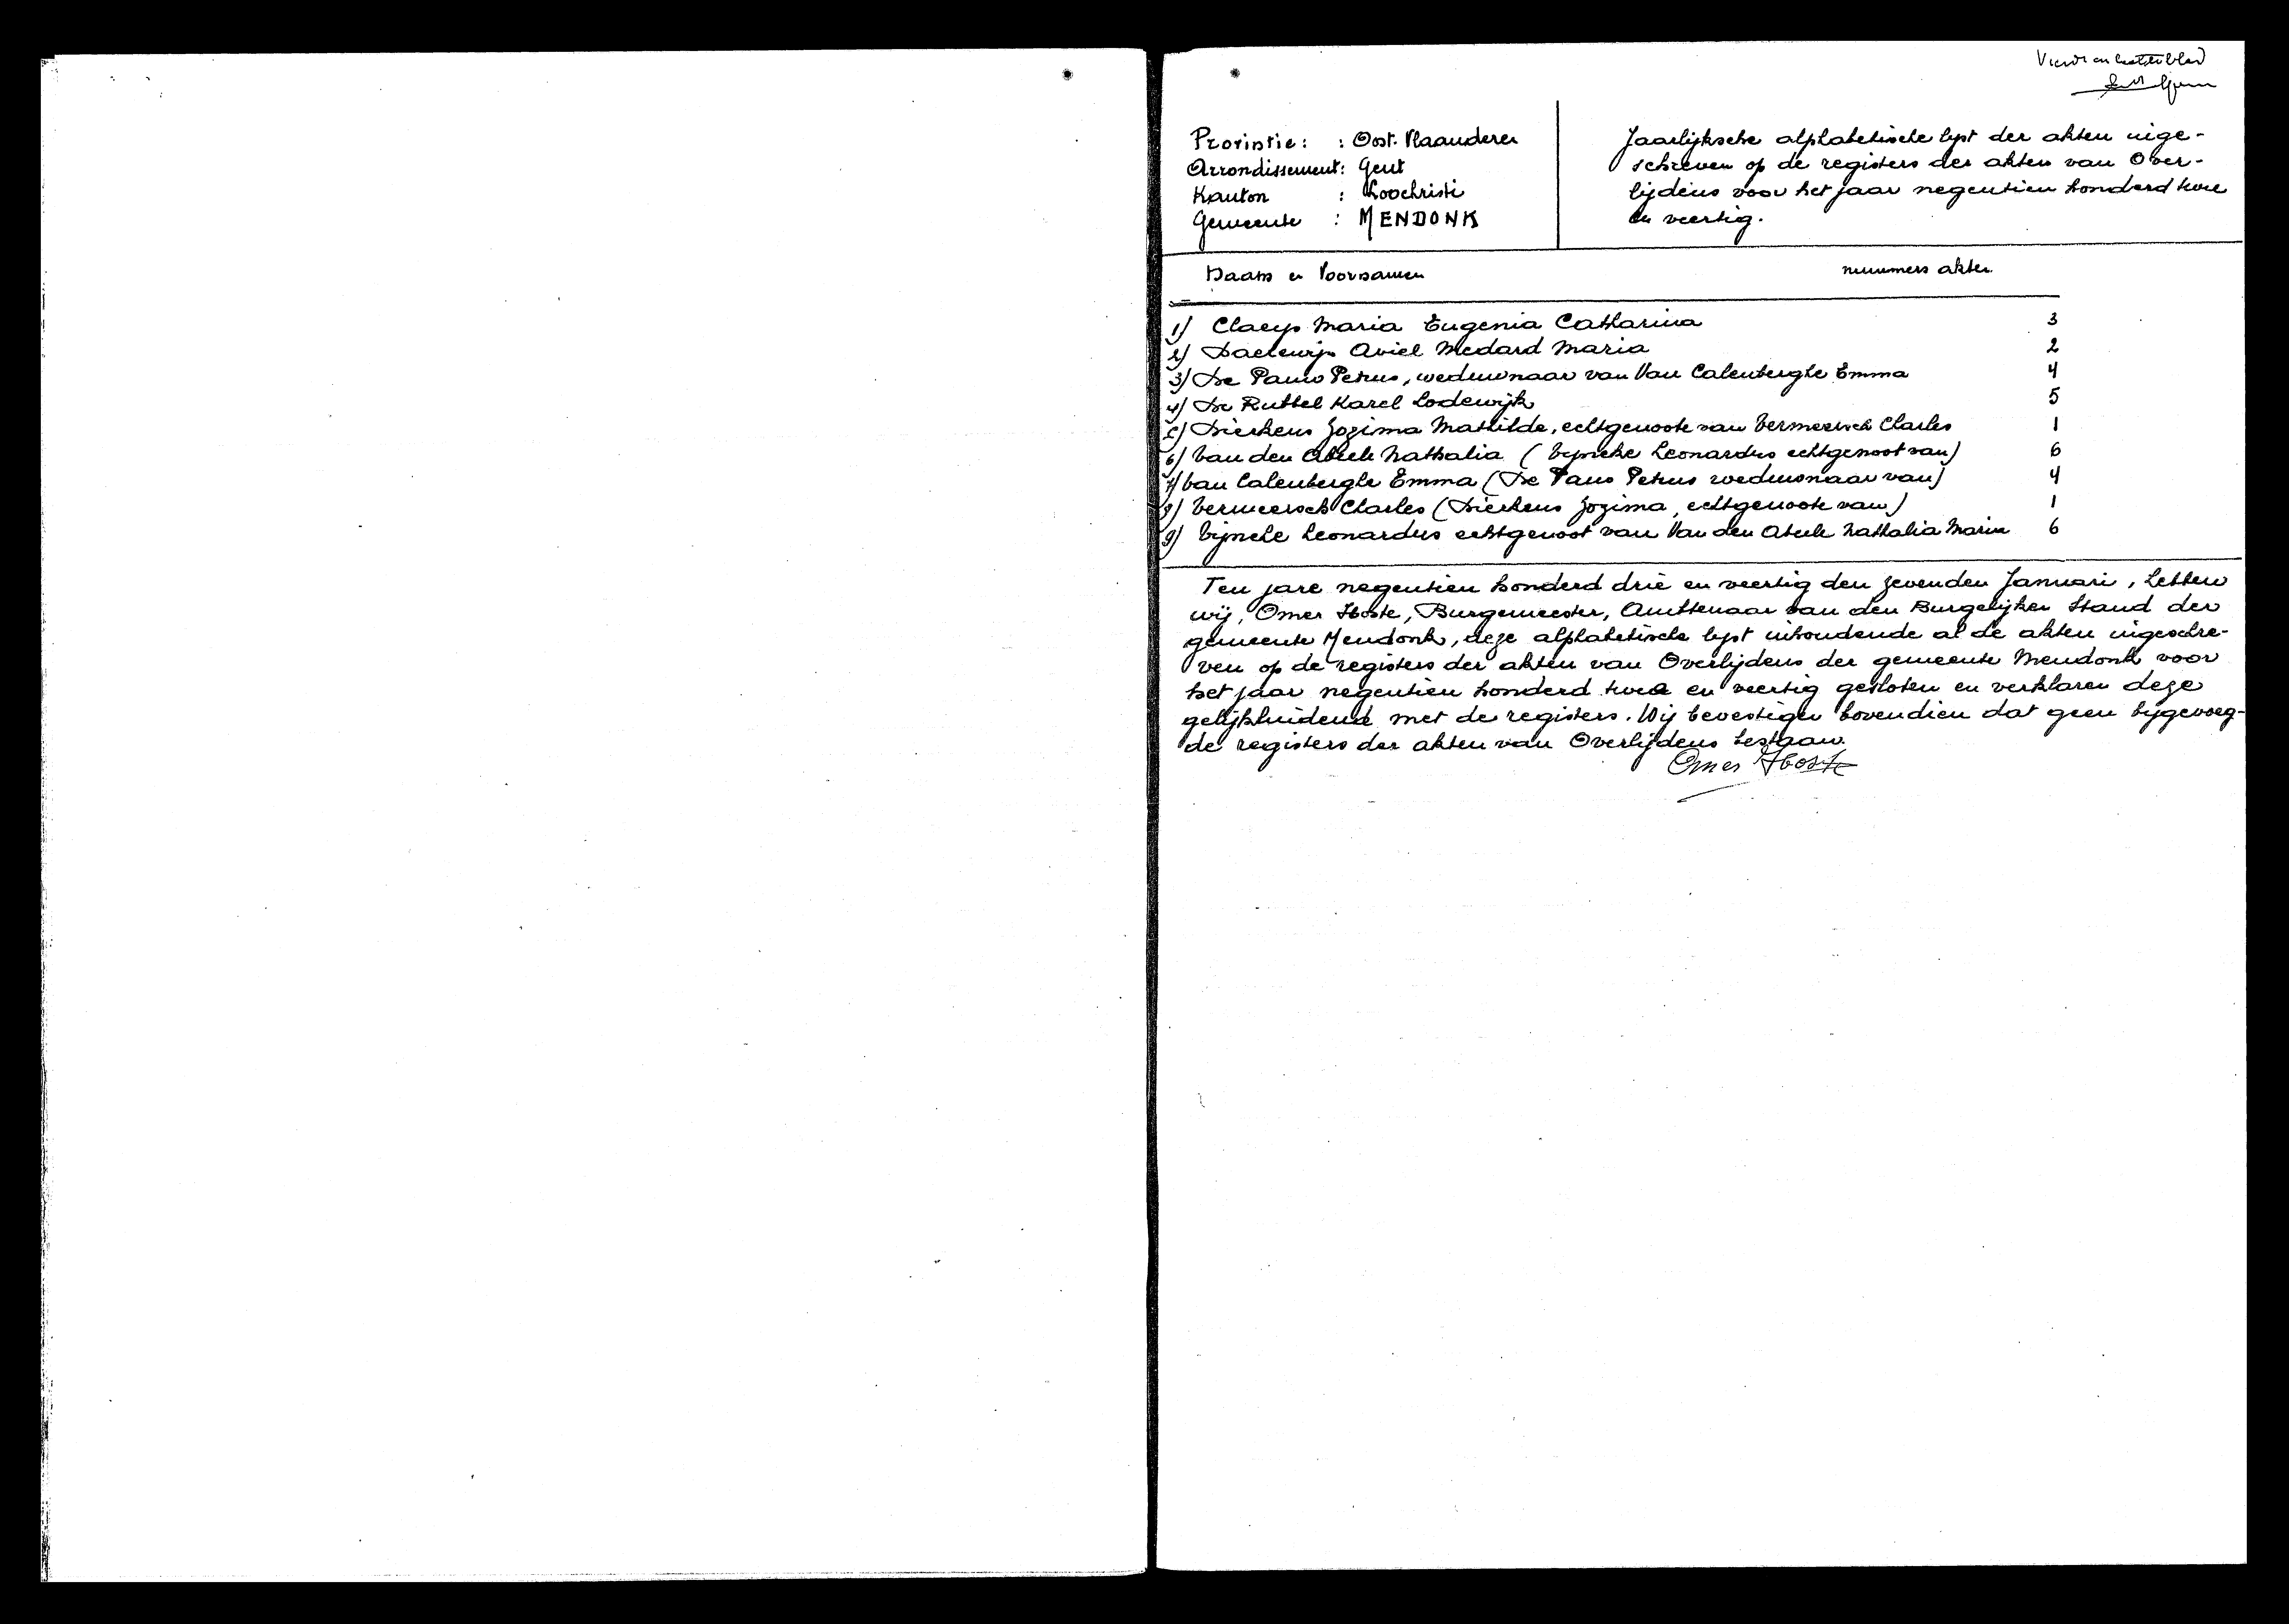 Vierde en laatste blad
Provintie: : Oost-Vlaanderen
Arrondissement: Gent
Kanton : Loochristi
Gemeente : MENDONK
Jaarlijksche alphabetische lyst der akten inge-
schreven op de registers der akten van Over-
lijdens voor het jaar negentien honderd twee
en veertig.
Naam en Voornamen nummers akten
1) Claeys Maria Eugenia Catharina 3
2) Daelewijn Aviel Medard Maria 2
3) De Pauw Petrus, weduwnaar van Van Calenberghe Emma 4
4) De Ruttel Karel Lodewijk 5
5) Dierkens Zozima Mathilde, echtgenoote van Vermeersch Charles 1
6) Van den Abeele Nathalia (Vijncke Leonardus echtgenoot van) 6
7) Van Calenberghe Emma (De Pauw Petrus weduwnaar van) 4
8) Vermeersch Charles (Dierkens Zozima, echtgenoote van) 1
9) Vijncke Leonardus echtgenoot van Van den Abeele Nathalia Maria 6
Ten jare negentien honderd drie en veertig den zevenden Januari, hebben
wij, Omer Hoste, Burgemeester, Ambtenaar van den Burgelijken Stand der
gemeente Mendonk, deze alphabetische lyst inhoudende al de akten ingeschre-
ven op de registers der akten van Overlijdens der gemeente Mendonk voor
het jaar negentien honderd twee en veertig gesloten en verklaren deze
gelijkluidend met de registers. Wij bevestigen bovendien dat geen bijgevoeg-
de registers der akten van Overlijdens bestaan.
Omer Hoste